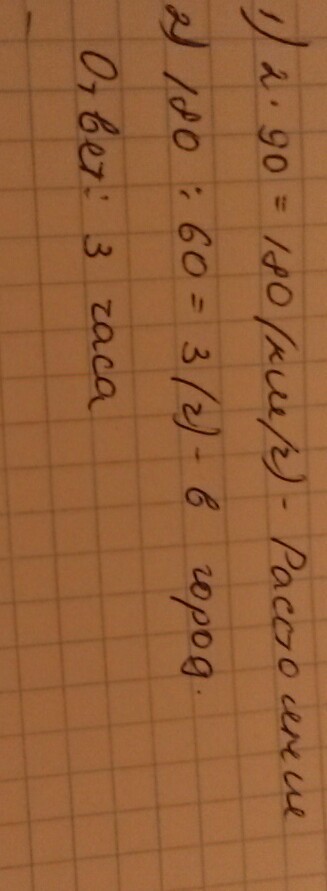 1) 2 · 90 = 180 (км/ч) - Расстояние
2) 180 : 60 = 3 (ч) - в город.
Ответ: 3 часа